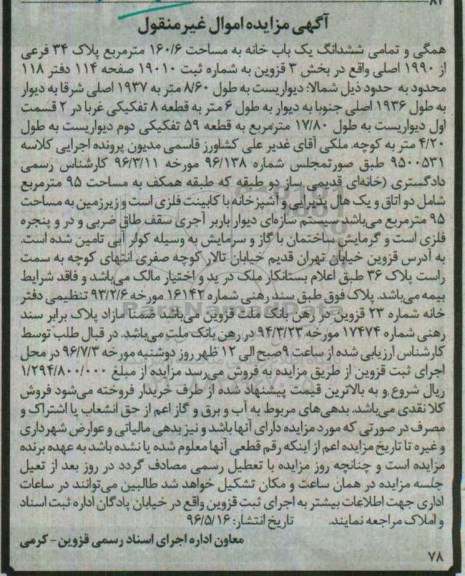 آگهی مزایده اموال غیرمنقول
همگی و تمامی ششدانگ یک باب خانه به مساحت ۱۶۰/۶ مترمربع پلاک ۳۴ فرعی
از ۱۹۹۰ اصلی واقع در بخش ۳ قزوین به شماره ثبت ۱۹۰۱۰ صفحه ۱۱۴ دفتر ۱۱۸
محدود به حدود ذیل شمالا: دیواریست به طول ۸/۶۰ متر به ۱۹۳۷ اصلی شرقا به دیوار
به طول ۱۹۳۶ اصلی جنوبا به دیوار به طول ۶ متر به قطعه ۸ تفکیکی غربا در ۲ قسمت
اول دیواریست به طول ۱۷/۸۰ مترمربع به قطعه ۵۹ تفکیکی دوم دیواریست به طول
۴/۲۰ متر به کوچه. ملکی آقای غدیر علی کشاورز قاسمی مدیون پرونده اجرایی کلاسه
۹۵۰۰۵۳۱ طبق صورتمجلس شماره ۹۶/۱۳۸ مورخه ۹۶/۳/۱۱ کارشناس رسمی
دادگستری (خانه‌ای قدیمی ساز دو طبقه که طبقه همکف به مساحت ۹۵ مترمربع
شامل دو اتاق و یک هال پذیرایی و آشپزخانه با کابینت فلزی است و زیرزمین به مساحت
۹۵ مترمربع می‌باشد سیستم سازه‌ای دیوار باربر آجری سقف طاق ضربی و در و پنجره
فلزی است و گرمایش ساختمان با گاز و سرمایش به وسیله کولر آبی تامین شده است.
به آدرس قزوین خیابان تهران قدیم خیابان تالار کوچه صفری انتهای کوچه به سمت
راست پلاک ۳۶ طبق اعلام بستانکار ملک در ید و اختیار مالک می‌باشد و فاقد شرایط
بیمه می‌باشد. پلاک فوق طبق سند رهنی شماره ۱۶۱۴۲ مورخه ۹۳/۲/۶ تنظیمی دفتر
خانه شماره ۲۳ قزوین در رهن بانک ملت قزوین می‌باشد ضمنا مازاد پلاک برابر سند
رهنی شماره ۱۷۴۷۴ مورخه ۹۴/۳/۲۳ در رهن بانک ملت می‌باشد. در قبال طلب توسط
کارشناس ارزیابی شده از ساعت ۹ صبح الی ۱۲ ظهر روز دوشنبه مورخه ۹۶/۷/۳ در محل
اجرای ثبت قزوین از طریق مزایده به فروش می‌رسد مزایده از مبلغ ۱/۲۹۴/۸۰۰/۰۰۰
ریال شروع و به بالاترین قیمت پیشنهاد شده از طرف خریدار فروخته می‌شود فروش
کلا نقدی می‌باشد. بدهی‌های مربوط به آب و برق و گاز اعم از حق انشعاب یا اشتراک و
مصرف در صورتی که مورد مزایده دارای آنها باشد و نیز بدهی مالیاتی و عوارض شهرداری
و غیره تا تاریخ مزایده اعم از اینکه رقم قطعی آنها معلوم شده یا نشده باشد به عهده برنده
مزایده است و چنانچه روز مزایده با تعطیل رسمی مصادف گردد در روز بعد از تعیل
جلسه مزایده در همان ساعت و مکان تشکیل خواهد شد طالبین می‌توانند در ساعات
اداری جهت اطلاعات بیشتر به اجرای ثبت قزوین واقع در خیابان پادگان اداره ثبت اسناد
و املاک مراجعه نمایند. تاریخ انتشار: ۹۶/۵/۱۶
معاون اداره اجرای اسناد رسمی قزوین - کرمی
۷۸